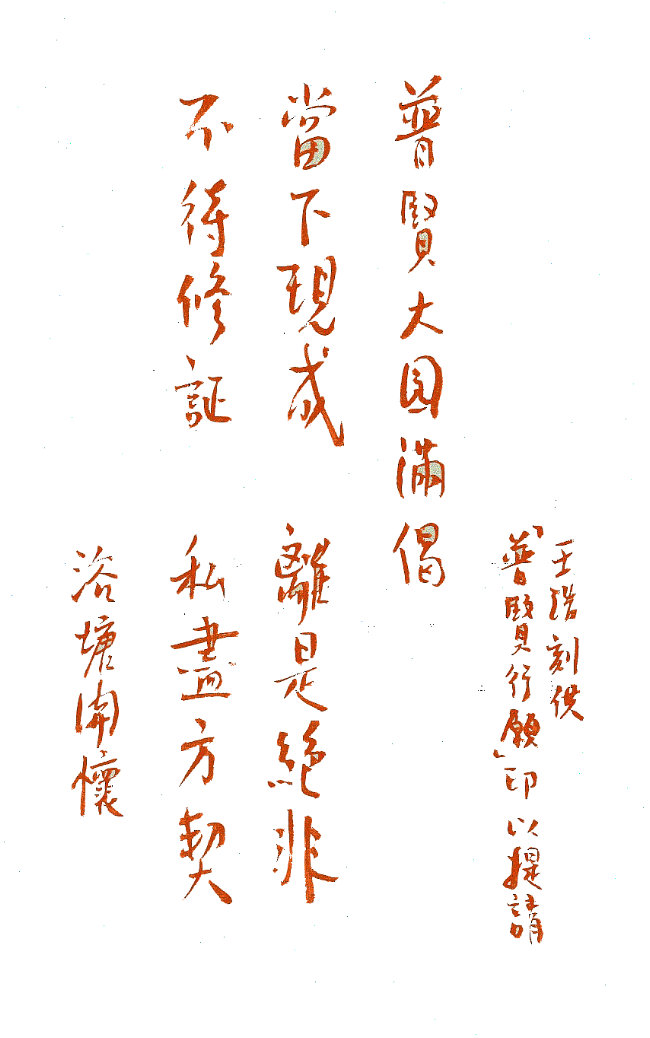 王浩刻供
「普賢行願」印以提請
普賢大圓滿偈
當下現成 離是絕非
不待修証 私盡方契
浴塘開懷